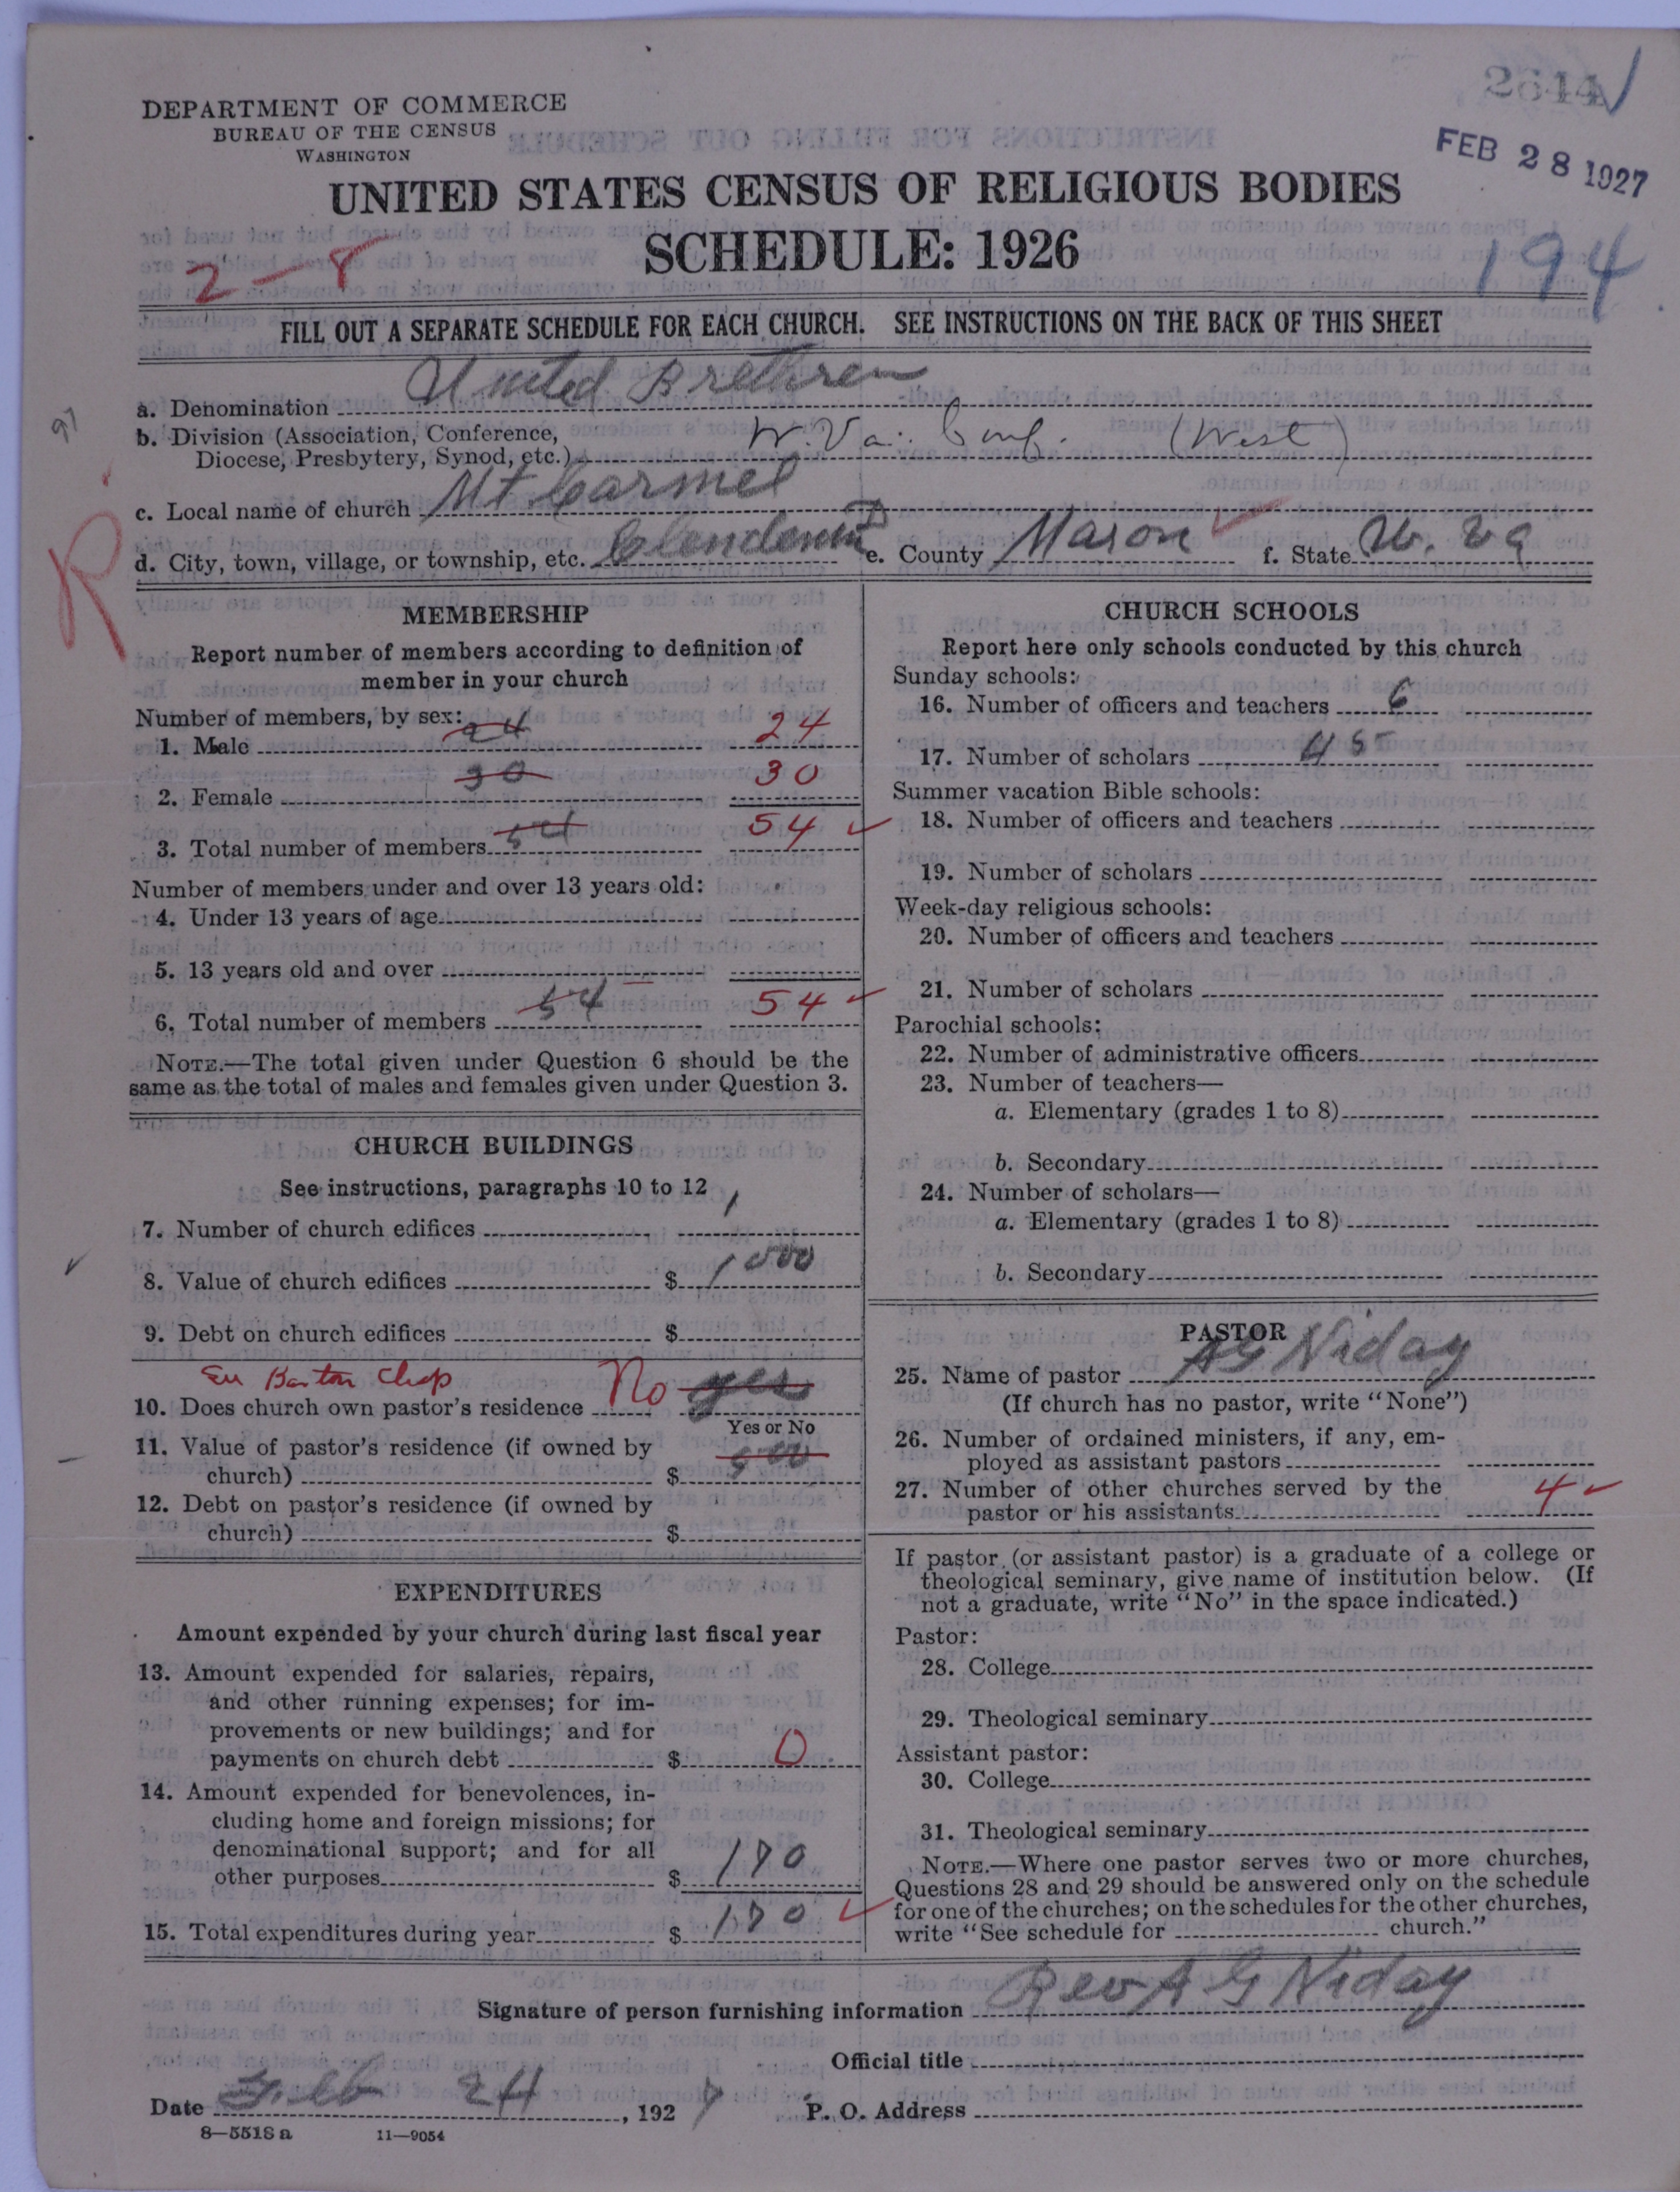 2614
DEPARTMENT OF COMMERCE
BUREAU OF THE CENSUS
WASHINGTON
FEB 28 1927
UNITED STATES CENSUS OF RELIGIOUS BODIES
SCHEDULE: 1926
2-8
194
FILL OUT A SEPARATE SCHEDULE FOR EACH CHURCH. SEE INSTRUCTIONS ON THE BACK OF THIS SHEET
a. Denomination United Brethren
97
b. Division (Association, Conference,
Diocese, Presbytery, Synod, etc.) W. Va. Conf. (West)
c. Local name of church Mt Carmel
R
d. City, town, village, or township, etc. Clendenin D e. County Mason f. State W. Va
MEMBERSHIP
Report number of members according to definition of
member in your church
Number of members, by sex:
1. Male 24 24
2. Female 30 30
3. Total number of members 54 54
Number of members under and over 13 years old:
4. Under 13 years of age
5. 13 years old and over
6. Total number of members 54 54
NOTE.—The total given under Question 6 should be the
same as the total of males and females given under Question 3.
CHURCH BUILDINGS
See instructions, paragraphs 10 to 12
7. Number of church edifices 1
8. Value of church edifices $ 1000
9. Debt on church edifices $
Barton Chap
10. Does church own pastor's residence No yes
Yes or No
11. Value of pastor's residence (if owned by
church) $ 500
12. Debt on pastor's residence (if owned by
church) $
EXPENDITURES
Amount expended by your church during last fiscal year
13. Amount expended for salaries, repairs,
and other running expenses; for im-
provements or new buildings; and for
payments on church debt $ 0
14. Amount expended for benevolences, in-
cluding home and foreign missions; for
denominational support; and for all
other purposes $ 170
15. Total expenditures during year $ 170
CHURCH SCHOOLS
Report here only schools conducted by this church
Sunday schools:
16. Number of officers and teachers 6
17. Number of scholars 45
Summer vacation Bible schools:
18. Number of officers and teachers
19. Number of scholars
Week-day religious schools:
20. Number of officers and teachers
21. Number of scholars
Parochial schools:
22. Number of administrative officers
23. Number of teachers—
a. Elementary (grades 1 to 8)
b. Secondary
24. Number of scholars—
a. Elementary (grades 1 to 8)
b. Secondary
PASTOR
25. Name of pastor AG Niday
(If church has no pastor, write "None")
26. Number of ordained ministers, if any, em-
ployed as assistant pastors
27. Number of other churches served by the
pastor or his assistants 4
If pastor (or assistant pastor) is a graduate of a college or
theological seminary, give name of institution below. (If
not a graduate, write "No" in the space indicated.)
Pastor:
28. College
29. Theological seminary
Assistant pastor:
30. College
31. Theological seminary
NOTE.—Where one pastor serves two or more churches,
Questions 28 and 29 should be answered only on the schedule
for one of the churches; on the schedules for the other churches,
write "See schedule for church."
Signature of person furnishing information Rev A G Niday
Official title
Date Feb 24, 1927 P. O. Address
8—5518 a 11—9054